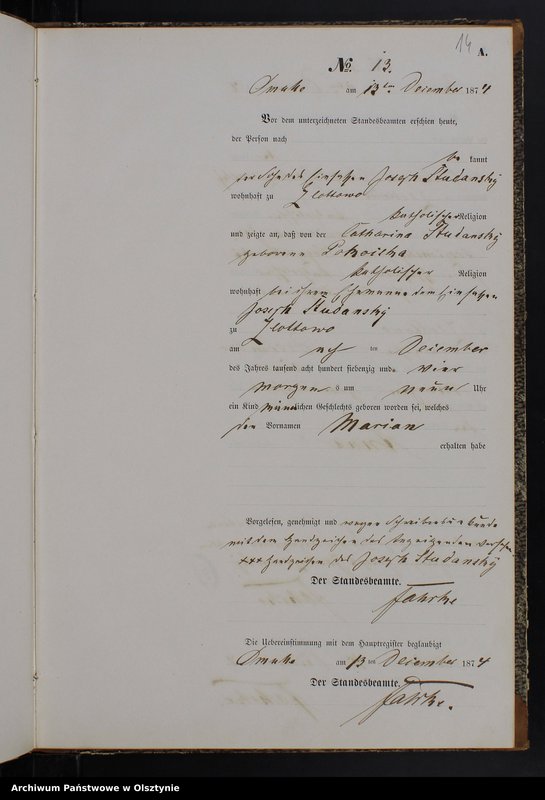 14
A.
No. 13.
am 13ten December 1874
Vor dem unterzeichneten Standesbeamten erschien heute,
der Person nach
be kannt
Joseph Studansky
wohnhaft zu Zlottowo
katholischer Religion
und zeigte an, daß von der Catharina Studansky
geborene
katholischer Religion
wohnhaft bei ihrem Ehemanne dem Einsassen
Joseph Studansky
zu Zlottowo
am ten December
des Jahres tausend acht hundert siebenzig und vier
Morgens um neun Uhr
ein Kind männlichen Geschlechts geboren worden sei, welches
den Vornamen Marian
erhalten habe
Vorgelesen, genehmigt und wegen Schreibensunkunde
mit dem Handzeichen des Anzeigenden versehen
+++ Handzeichen des Joseph Studansky
Der Standesbeamte.
Die Uebereinstimmung mit dem Hauptregister beglaubigt
am 13 ten December 1874
Der Standesbeamte.
Archiwum Państwowe w Olsztynie